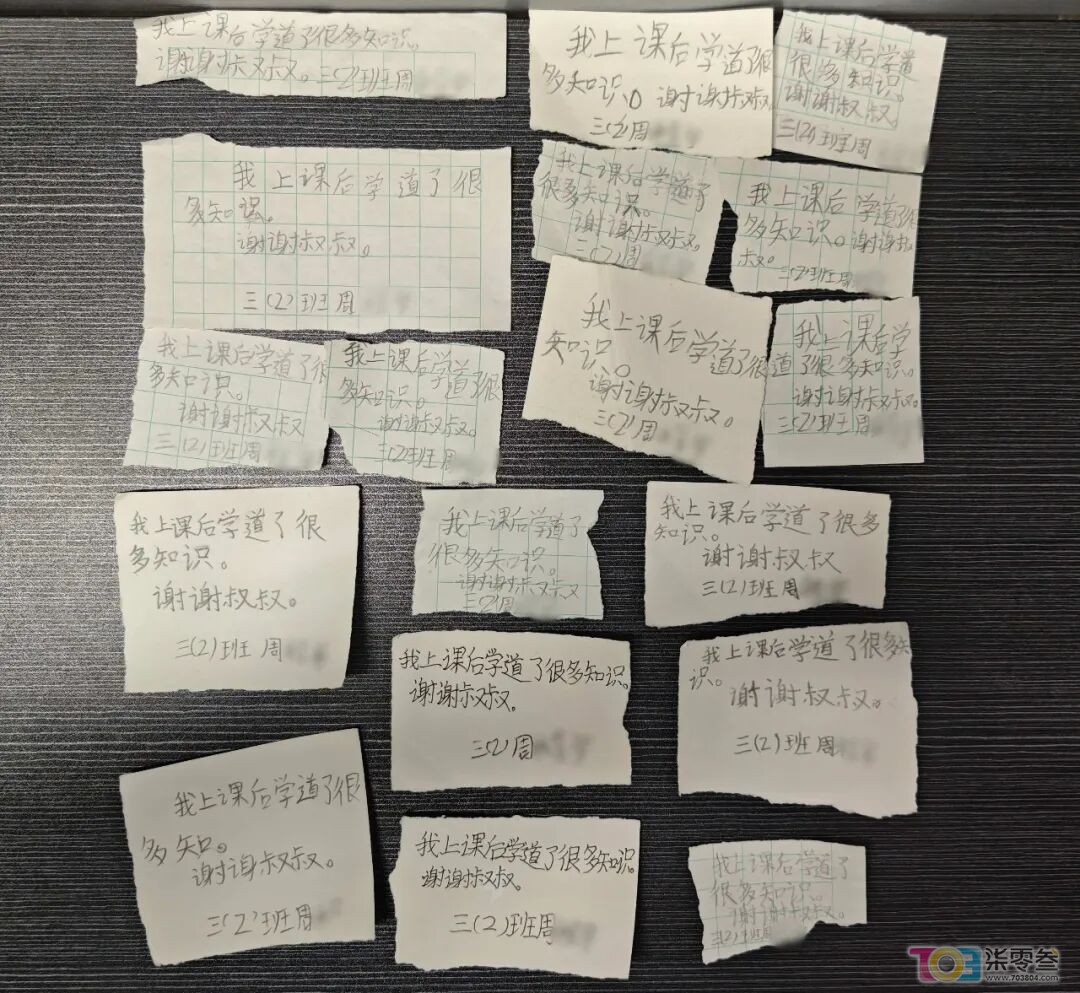 我上课后学道了很多知识。
谢谢叔叔。三(2)班周
我上课后学道了很
多知识。谢谢叔叔
三(2)周
我上课后学道
很多知识。
谢谢叔叔
三(2)班周
我上课后学道了很
多知识。
谢谢叔叔。
三(2)班周
我上课后学道了
很多知识。
谢谢叔叔。
三(2)周
我上课后学道了很
多知识。谢谢叔
叔。
三(2)班周
我上课后学道了很
多知识。
谢谢叔叔
三(2)班周
我上课后学道了很
多知识。
谢谢叔叔。
三(2)班周
我上课后学道了很
知识。
谢谢叔叔。
三(2)周
我上课后学
道了很多知识。
谢谢叔叔。
三(2)班周
我上课后学道了很
多知识。
谢谢叔叔。
三(2)班周
我上课后学道了
很多知识。
谢谢叔叔
三(2)周
我上课后学道了很多
知识。
谢谢叔叔
三(2)班周
我上课后学道了很多知识。
谢谢叔叔。
三(2)周
我上课后学道了很多知
识。
谢谢叔叔。
三(2)班周
我上课后学道了很
多知。
谢谢叔叔。
三(2)班周
我上课后学道了很多知识。
谢谢叔叔。
三(2)班周
我上课后学道了
很多知识。
谢谢叔叔。
三(2)班周
703 柒零叁
www.703804.com